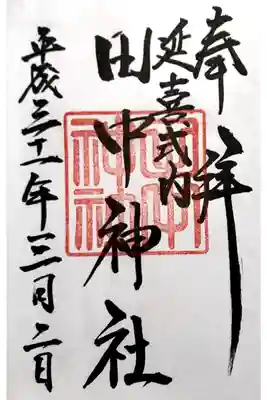 奉拝
延喜式内
田中神社
平成三十一年三月二日